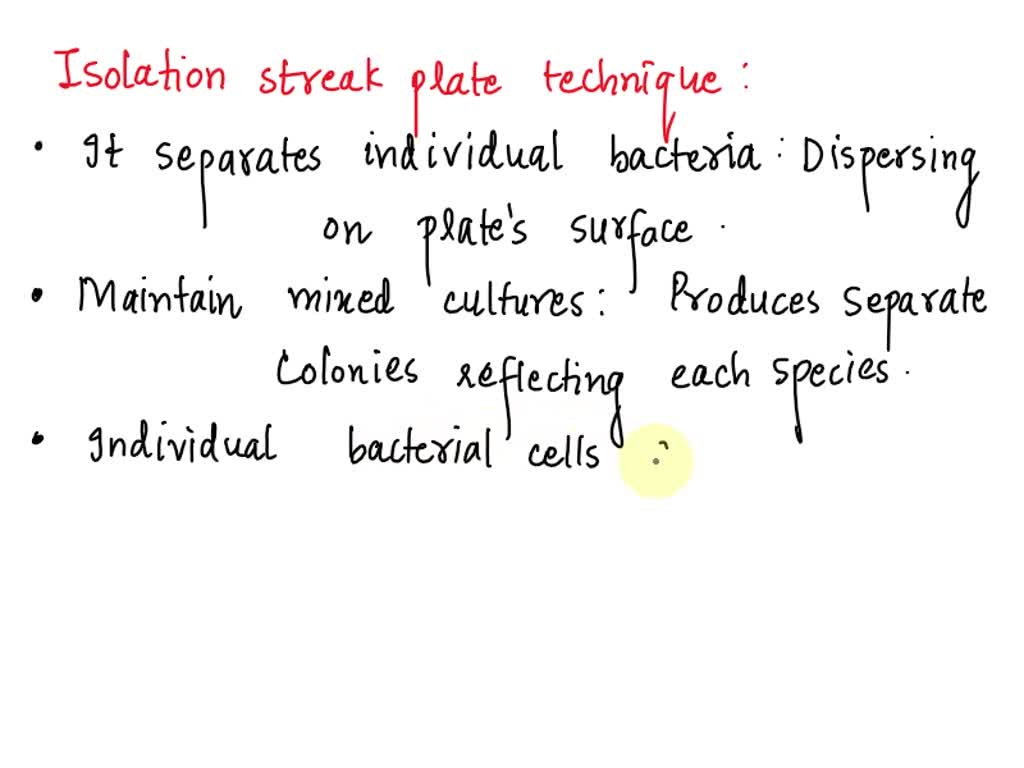 Isolation streak plate technique :
• It separates individual bacteria : Dispersing
on plate's surface .
• Maintain mixed cultures : Produces separate
Colonies reflecting each species .
• Individual bacterial cells :